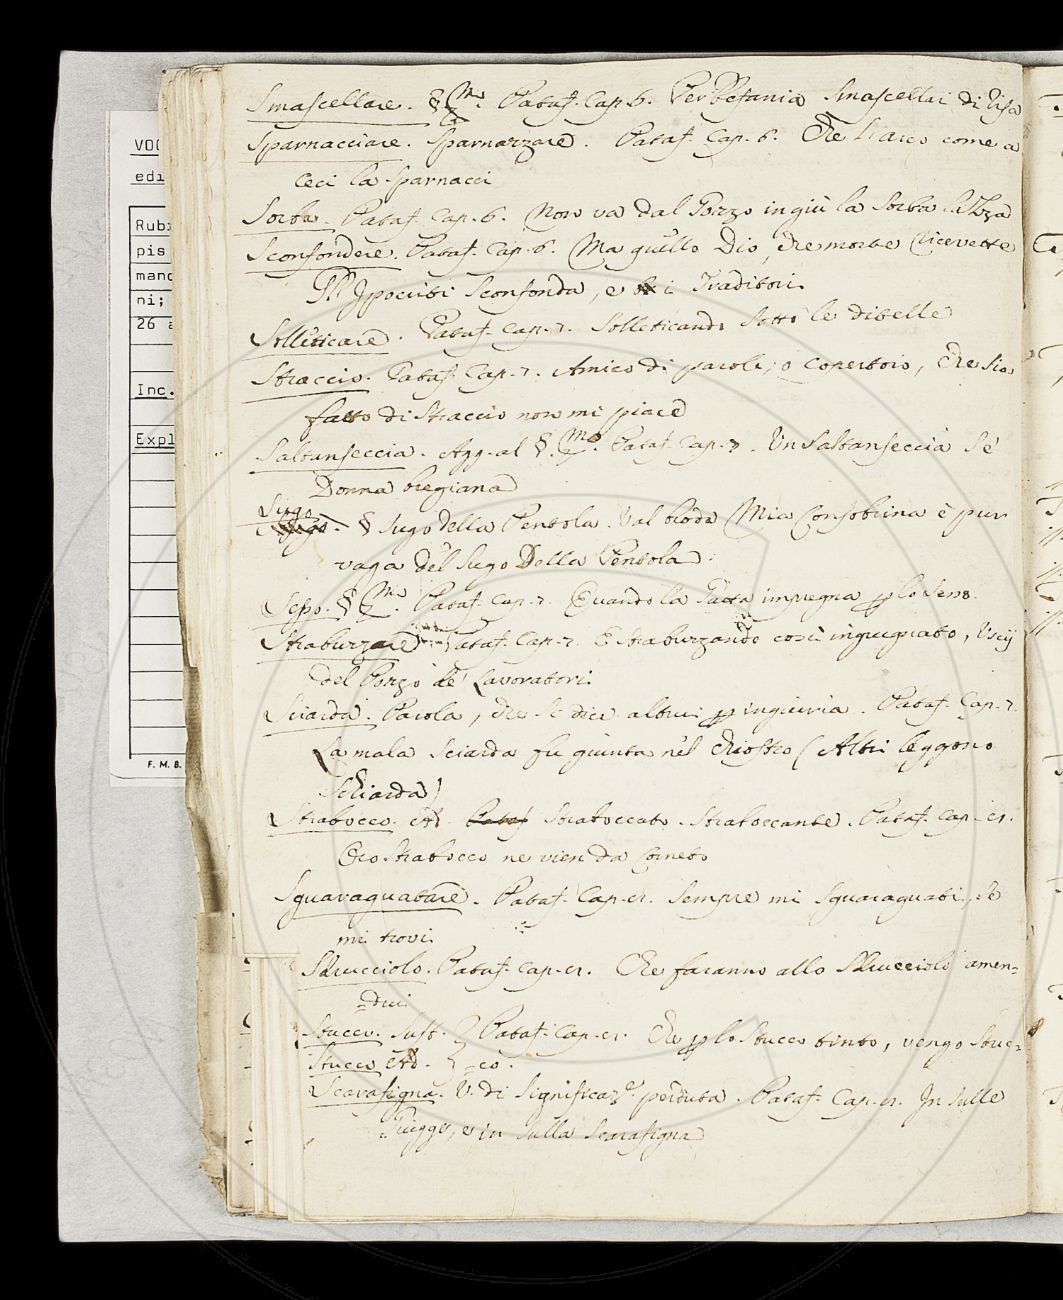 VOC
edi
Rub
pis
mano
ni;
26 a
Inc.
Expl
F. M. B.
Smascellare. § Mo. Pataf. Cap. 6. Per Befania Smascellai di risa
Sparnacciare. Sparnazzare. Pataf. Cap. 6. Che come a
ceci la sparnacci
Sorba. Pataf. Cap. 6. Non va dal Pozzo in giù la Sorba
Sconfondere. Pataf. Cap. 6. Ma quello Dio, che morte ricevette
Gl' Ipocriti Sconfonda, e i Traditori
Solleticare. Pataf. Cap. 7. Solleticando sotto le ditelle
Straccio. Pataf. Cap. 7. Amico di parole, o Copertoio, Che sia
fatto di Straccio non mi piace
Saltanseccia. Agg. al §. Mo. Pataf. Cap. 7. Un Saltanseccia Se'
Donna bregiana
Sugo
§ Sugo della Pentola. Mia Consobrina è pur
vaga del Sugo Della Pentola.
Seppo. § Mo. Pataf. Cap. 7. Quando la impregna
Straburzare. Pataf. Cap. 7. E straburzando così ingrugnato, Uscij
del Pozzo de' Lavoratori
Sciarda. Parola, che si dice altrui p ingiuria. Pataf. Cap. 7.
La mala Sciarda fu giunta nel Chiostro (Altri leggono
Schiarda)
Strabocco. Ad. Pataf Straboccato. Straboccante. Pataf. Cap. 9.
Ero Strabocco ne vien da Corneto
Sguaraguatare. Pataf. Cap. 9. Sempre mi sguaraguati, se
mi trovi
Sdrucciolo. Pataf. Cap. 9. Che faranno allo Sdrucciolo amen=
=dui
Stucco. Sust. Pataf. Cap. 9. Che p lo Stucco tinto, vengo Stuc=
Stucco Ad. =co.
Scarafigna. V. di significaz.e perduta. Pataf. Cap. 9. In sulle
e in sulla Scarafigna